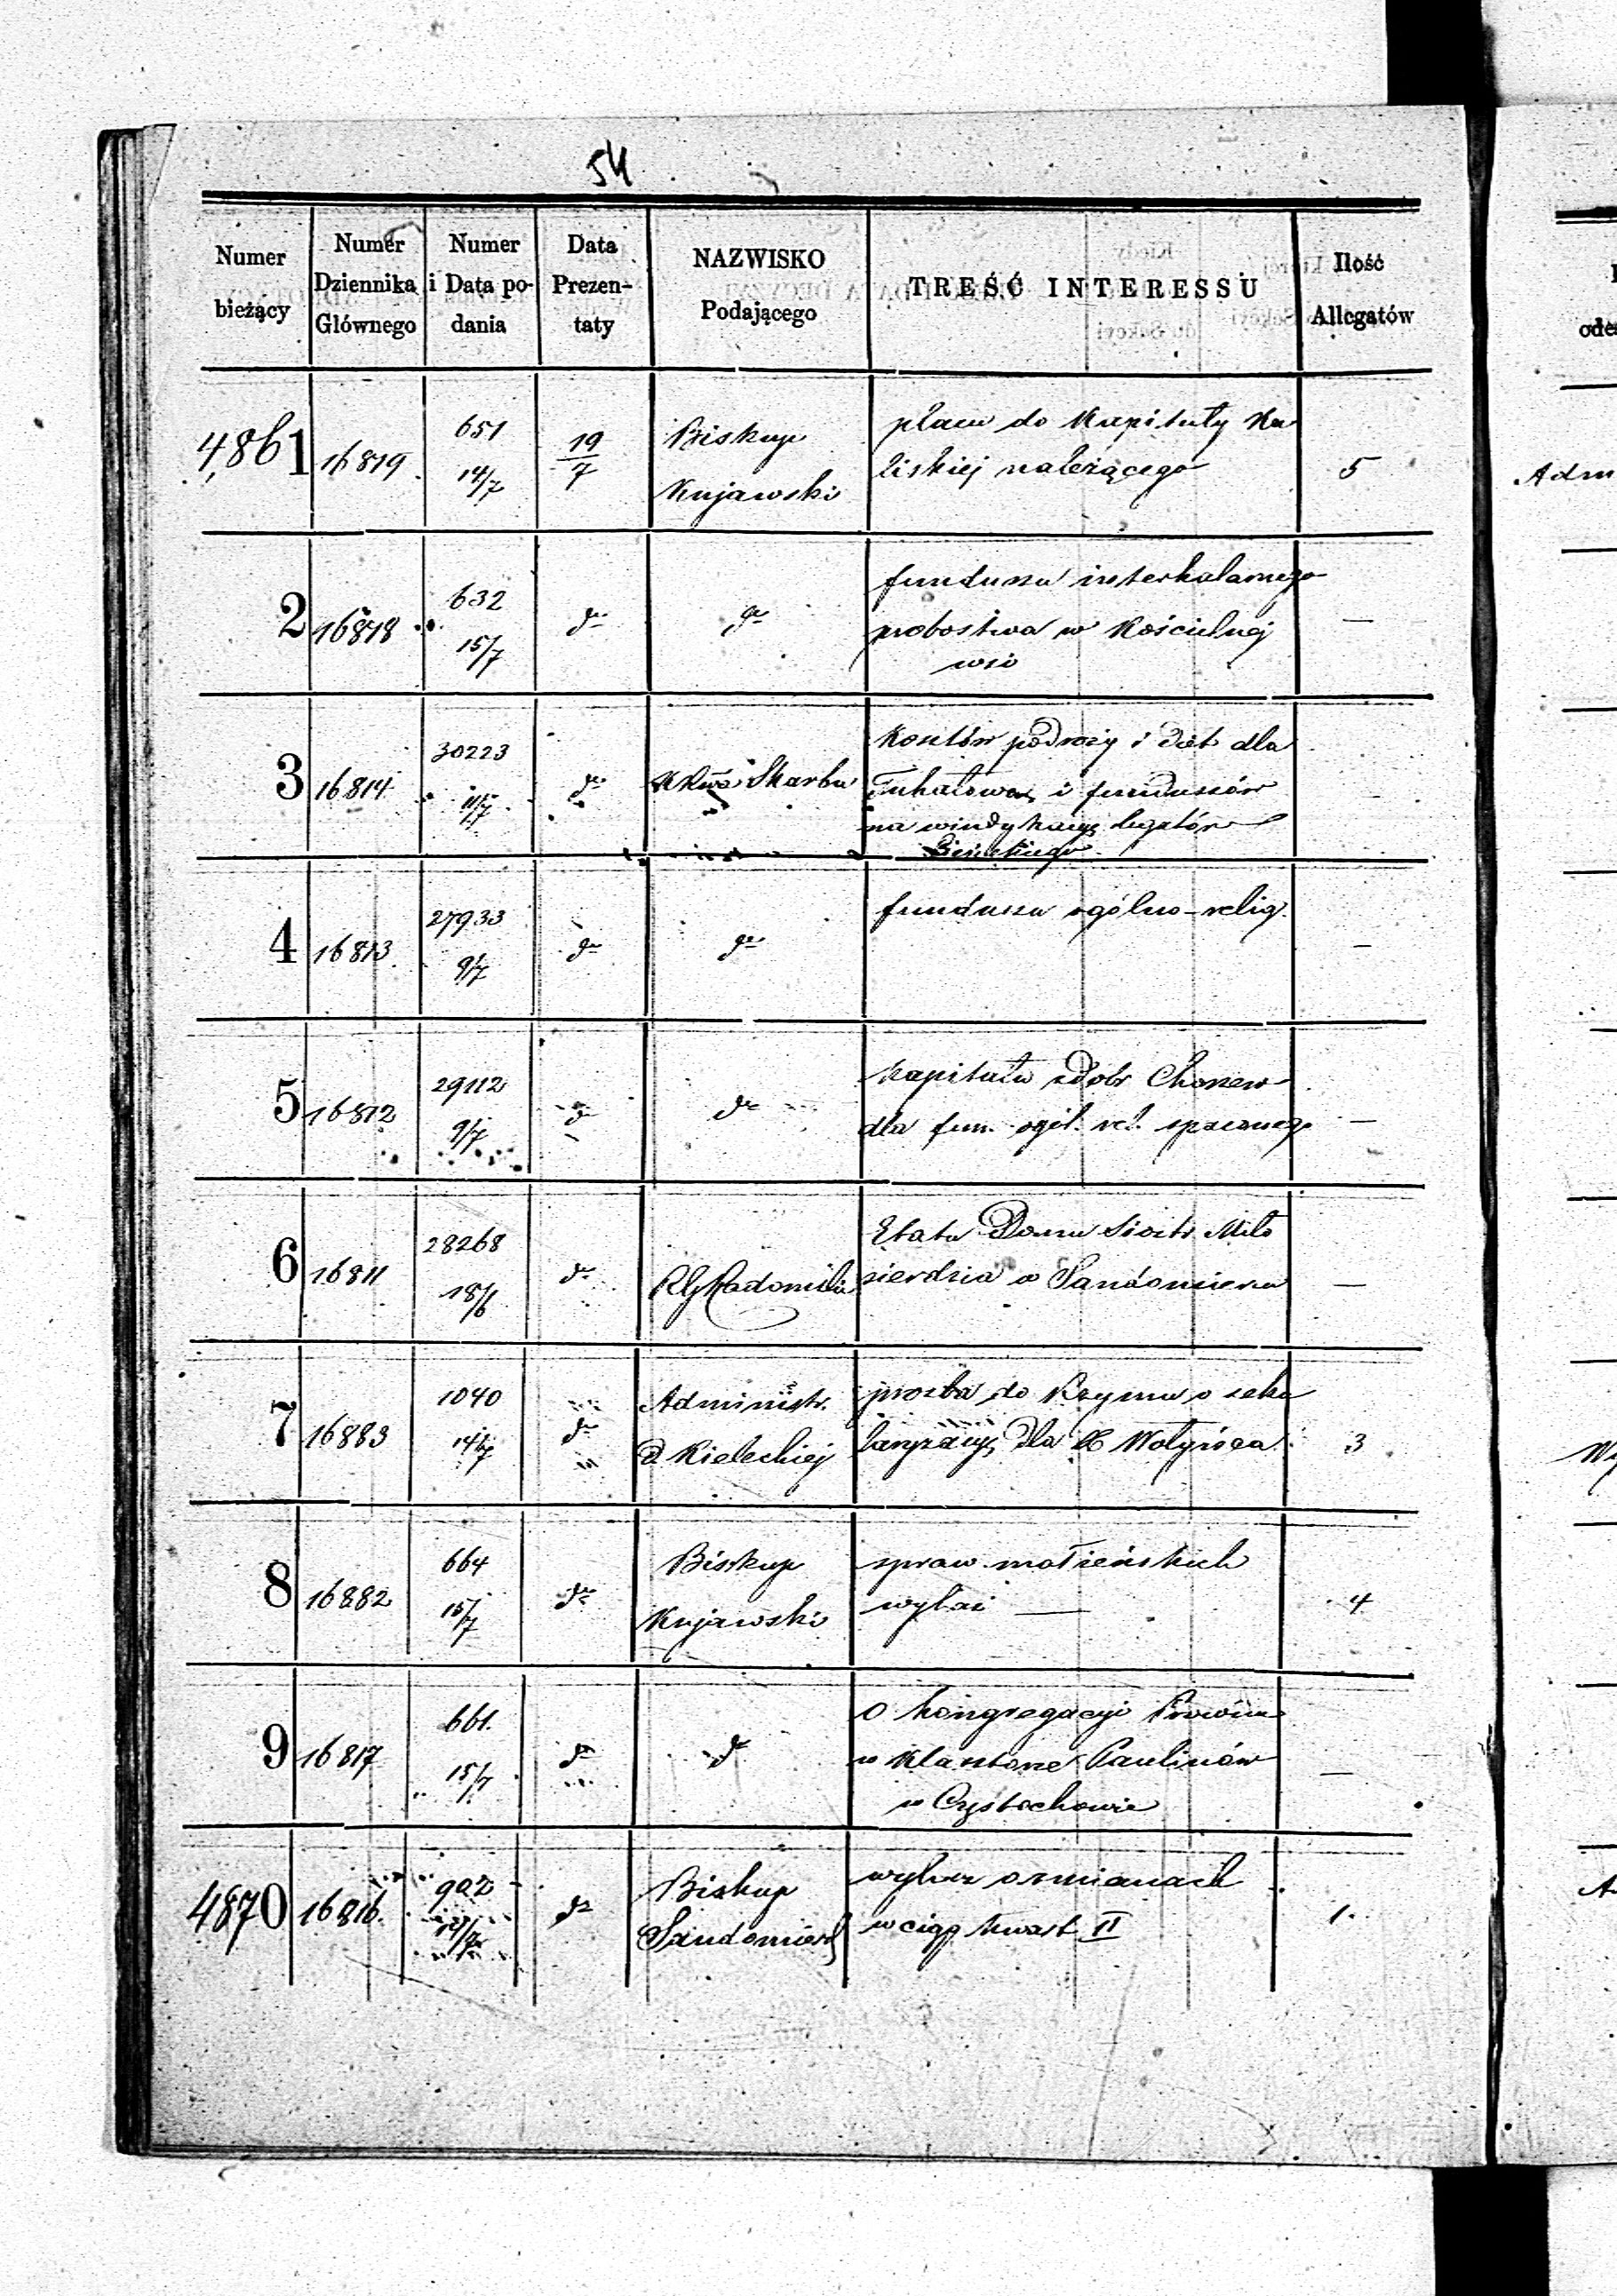 54
Numer bieżący
Numer Dziennika Głównego
Numer i Data podania
Data Prezentaty
NAZWISKO Podającego
TREŚĆ INTERESSU
Ilość Allegatów
4861 16819 651 14/7 19/7 Biskup Kujawski
placu do Kapituły Ka
liskiej należącego
5
2 16818 632 15/7 do do
funduszu interkalarnego
probostwa w Kościelnej
wsi
—
3 16814 30223 11/7 do Skarbu
Kosztów podroży i diet dla
i funduszów
na windykacyę legatów
4 16813 27933 9/7 do do
funduszu ogólno-relig.
—
5 16812 29112 9/7 do do
Kapitału z dobr
dla fun. ogól. rel.
—
6 16811 28268 18/6 do RGRadomski
Etatu Domu Siostr Miło
sierdzia w Sandomierzu
—
7 16883 1040 14/7 do Administr. D Kieleckiej
prośba do Rzymu o seku
laryzacyę dla X Wołyńca
3
8 16882 664 15/7 do Biskup Kujawski
spraw małżeńskich
wykaz —
4
9 16817 661. 15/7 do do
o kongregacyi Prowin
w Klasztorze Paulinów
w Częstochowie
—
4870 16816. 902 do Biskup Sandomiersk
wykaz o zmianach
w ciągu kwart II
1.
Adm